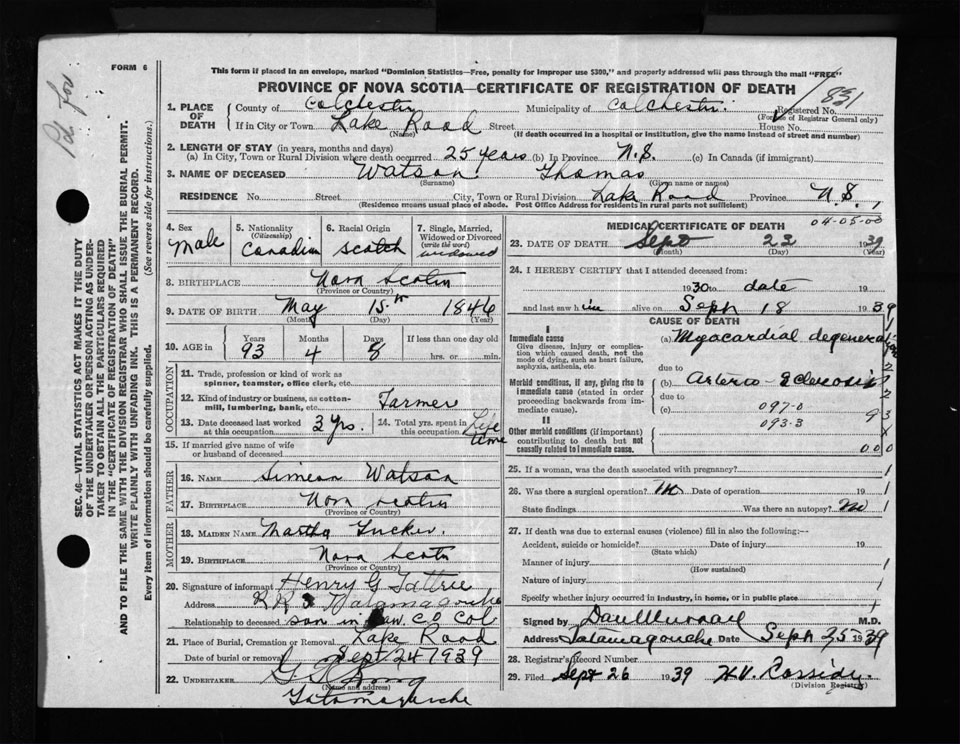 Pd for
FORM 6
SEC. 46—VITAL STATISTICS ACT MAKES IT THE DUTY
OF THE UNDERTAKER OR PERSON ACTING AS UNDER-
TAKER TO OBTAIN ALL THE PARTICULARS REQUIRED
IN THE "CERTIFICATE OF REGISTRATION OF DEATH"
AND TO FILE THE SAME WITH THE DIVISION REGISTRAR WHO SHALL ISSUE THE BURIAL PERMIT.
WRITE PLAINLY WITH UNFADING INK. THIS IS A PERMANENT RECORD.
Every item of information should be carefully supplied. (See reverse side for instructions.)
This form if placed in an envelope, marked "Dominion Statistics—Free, penalty for improper use $300," and properly addressed will pass through the mail "FREE"
PROVINCE OF NOVA SCOTIA—CERTIFICATE OF REGISTRATION OF DEATH
831
1. PLACE OF DEATH County of Colchester Municipality of Colchester Registered No.
(For use of Registrar General only)
If in City or Town Lake Road Street House No.
(Name) (If death occurred in a hospital or institution, give the name instead of street and number)
2. LENGTH OF STAY (in years, months and days)
(a) In City, Town or Rural Division where death occurred 25 years (b) In Province N.S. (c) In Canada (if immigrant)
3. NAME OF DECEASED Watson Thomas
(Surname) (Given name or names)
RESIDENCE No. Street City, Town or Rural Division Lake Road Province N.S.,
(Residence means usual place of abode. Post Office Address for residents in rural parts not sufficient)
04-05-00
4. Sex Male
5. Nationality (Citizenship) Canadian
6. Racial Origin Scotch
7. Single, Married, Widowed or Divorced (write the word) widowed
8. BIRTHPLACE Nova Scotia
(Province or Country)
9. DATE OF BIRTH May 15th 1846
(Month) (Day) (Year)
10. AGE in Years 93 Months 4 Days 8 If less than one day
hrs. or min.
OCCUPATION
11. Trade, profession or kind of work as
spinner, teamster, office clerk, etc.
12. Kind of industry or business, as cotton-
mill, lumbering, bank, etc. Farmer
13. Date deceased last worked at this occupation 3 yrs. 14. Total yrs. spent in this occupation Life time
15. If married give name of wife
or husband of deceased
FATHER
16. NAME Simeon Watson
17. BIRTHPLACE Nova Scotia
(Province or Country)
MOTHER
18. MAIDEN NAME Martha Tucker.
19. BIRTHPLACE Nova Scotia
(Province or Country)
20. Signature of informant Henry G Tattrie
Address R R 3 Tatamagouche
Relationship to deceased son in law. CO Col
21. Place of Burial, Cremation or Removal Lake Road
Date of burial or removal Sept 24 1939
22. UNDERTAKER
(Name and address)
Tatamagouche
MEDICAL CERTIFICATE OF DEATH
23. DATE OF DEATH Sept 22 1939
(Month) (Day) (Year)
24. I HEREBY CERTIFY that I attended deceased from:
1930 to date 19
and last saw him alive on Sept 18 1939
CAUSE OF DEATH
I
Immediate cause (a) Myocardial degeneration
Give disease, injury or compli-
cation which caused death, not the
mode of dying, such as heart failure,
asphyxia, asthenia, etc.
due to
Morbid conditions, if any, giving rise to (b) Arterio-Sclerosis
immediate cause (stated in order
proceeding backwards from im-
mediate cause).
due to
(c) 097-0
093-3
93
II
Other morbid conditions (if important)
contributing to death but not
causally related to immediate cause.
000
25. If a woman, was the death associated with pregnancy?
26. Was there a surgical operation? No Date of operation 19
State findings Was there an autopsy? No
27. If death was due to external causes (violence) fill in also the following:—
Accident, suicide or homicide? Date of injury 19
(State which)
Manner of injury
(How sustained)
Nature of injury
Specify whether injury occurred in industry, in home, or in public place
Signed by Dan Murray M.D.
Address Tatamagouche Date Sept 25 1939
28. Registrar's Record Number
29. Filed Sept 26 1939 H.V. Cassidy.
(Division Registrar)